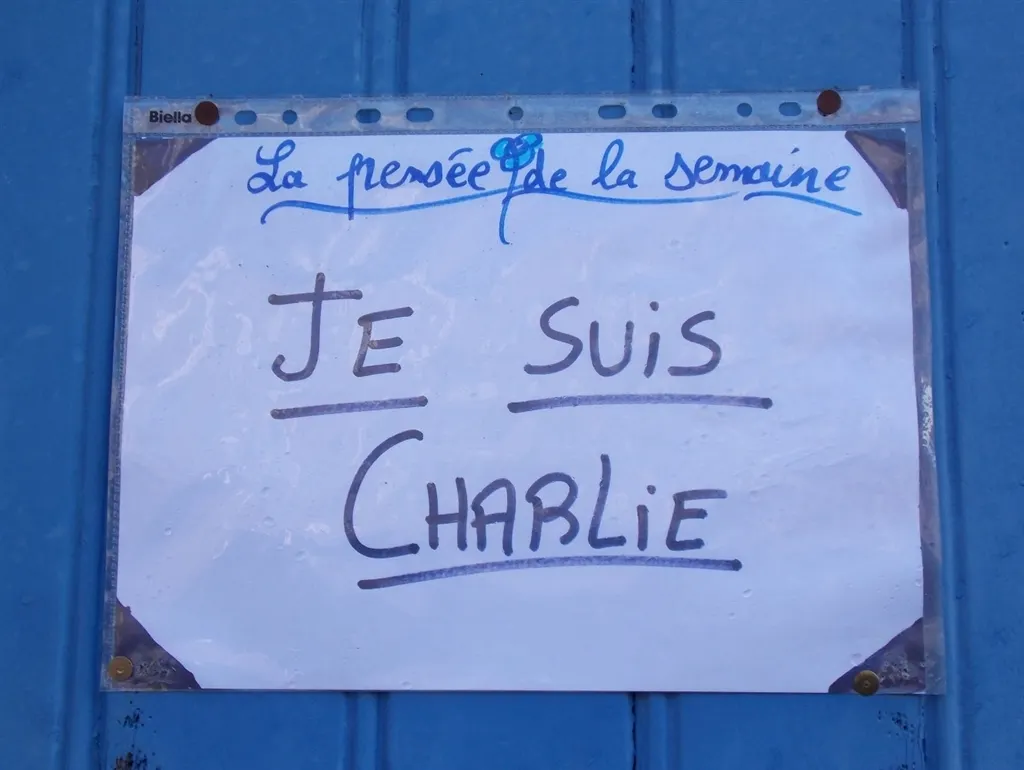 Biella
La pensée de la semaine
JE SUiS
CHARLiE